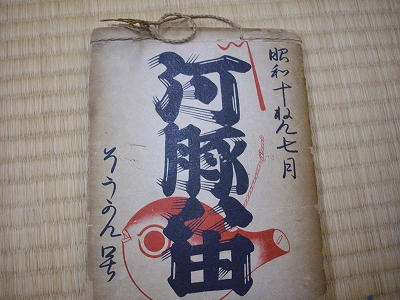 昭和十ねん七月
河豚笛
そうかん号